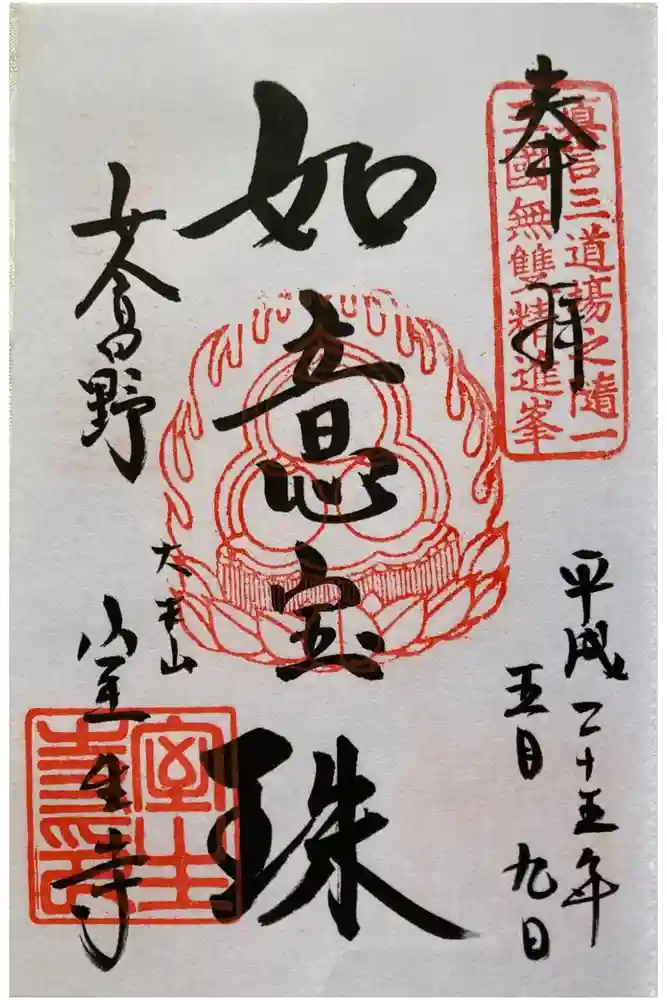 奉拝
真言三道場之隨一
三國無雙精進峯
平成二十五年
五月九日
如意宝珠
女人高野
大本山
室生寺
室生
寺印